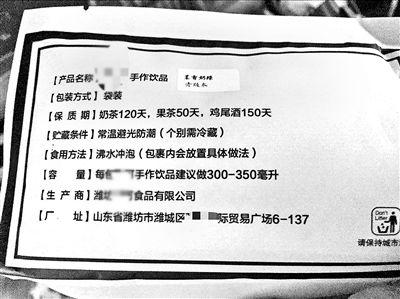 【产品名称 手作饮品
【包装方式】袋装
【保 质 期】奶茶120天，果茶50天，鸡尾酒150天
【贮藏条件】常温避光防潮（个别需冷藏）
【食用方法】沸水冲泡（包裹内会放置具体做法）
【容 量】每包 手作饮品建议做300-350毫升
【生 产 商】潍坊 食品有限公司
【厂 址】山东省潍坊市潍城区 际贸易广场6-137
Don't Litter
请保持城市